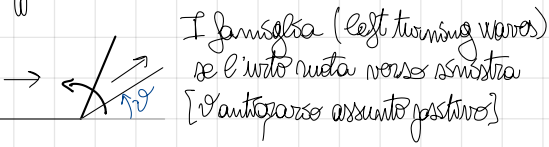 I famiglia (left turning waves)
se l'urto ruota verso sinistra
[ϑ antiorario assunto positivo]
ϑ